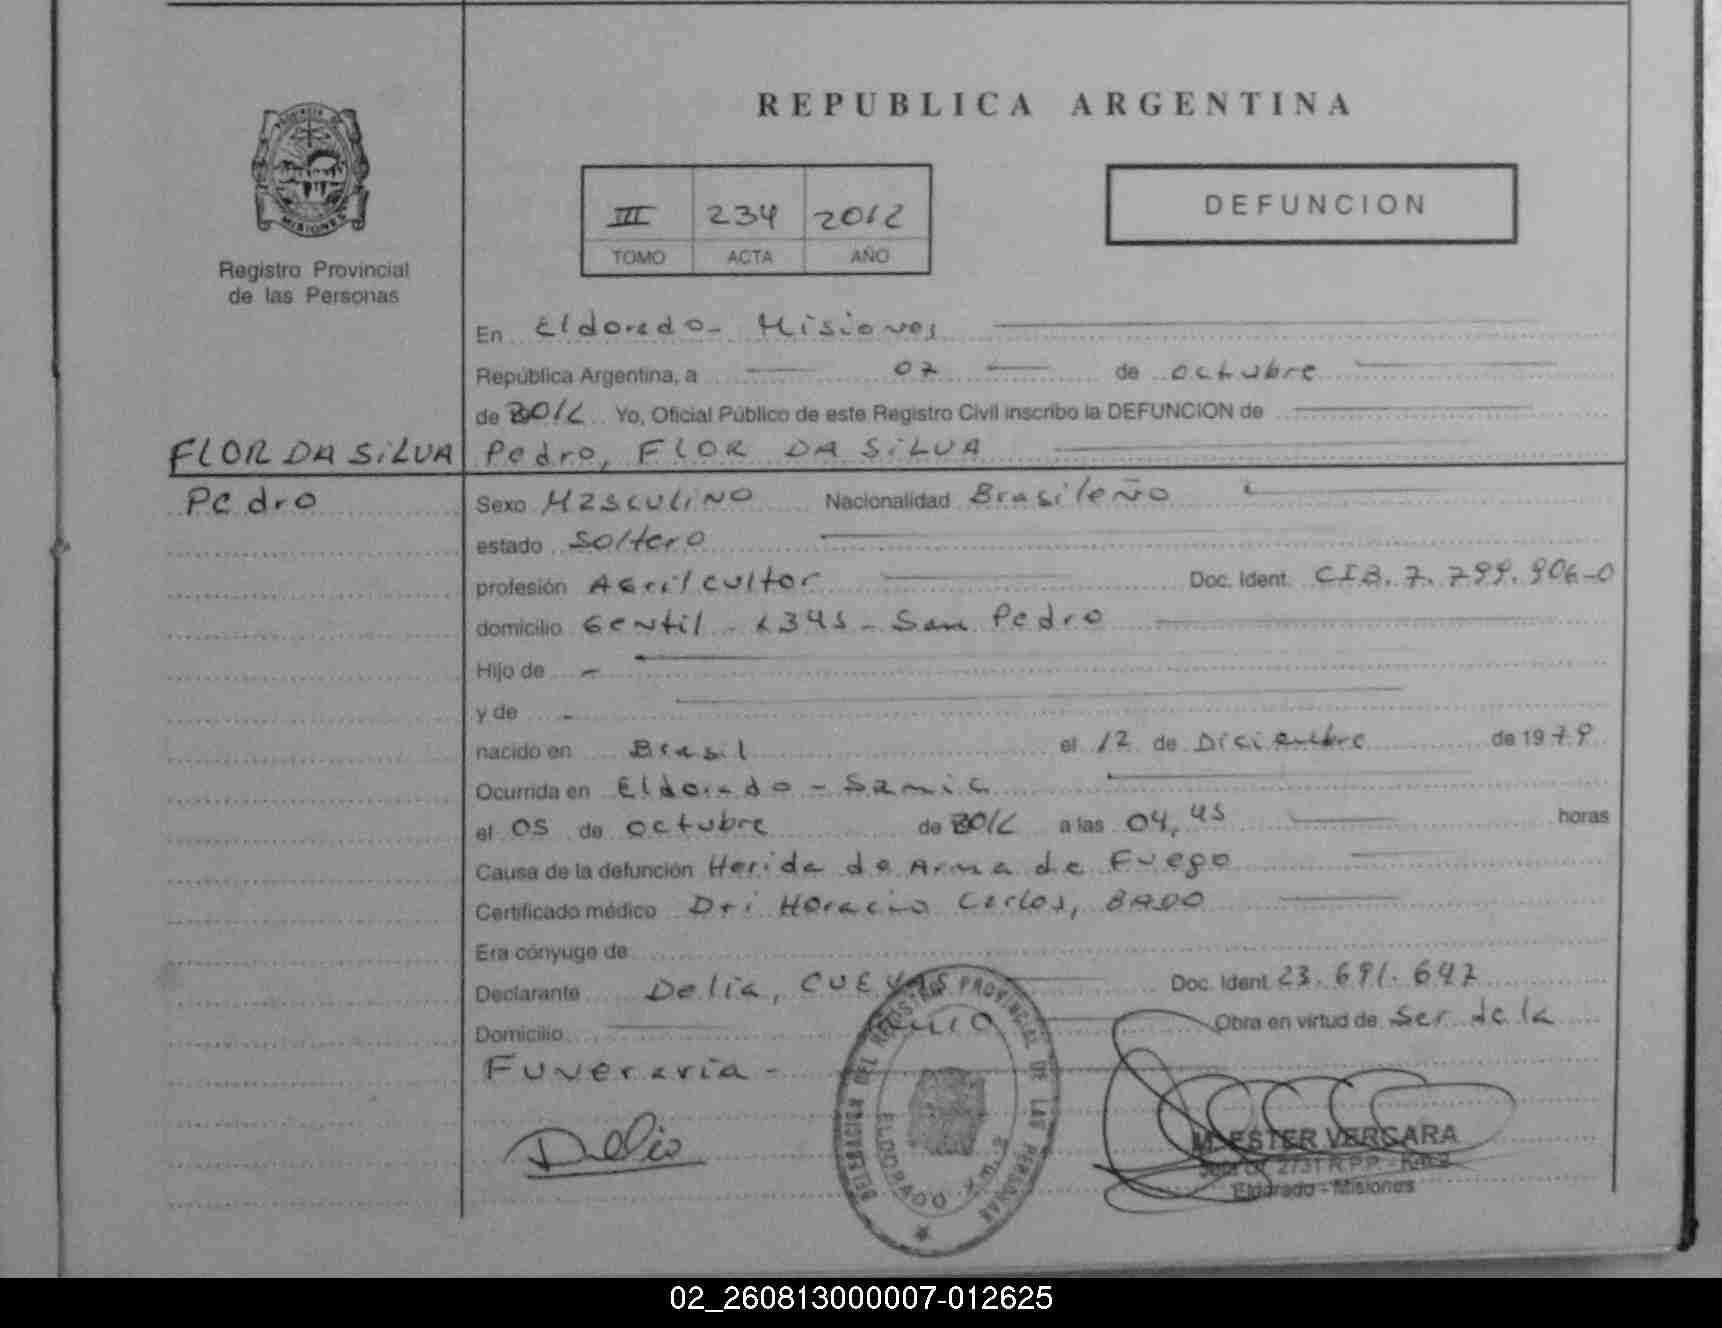 REPUBLICA ARGENTINA
PROVINCIA DE
MISIONES
Registro Provincial
de las Personas
III 234 2012
TOMO ACTA AÑO
DEFUNCION
En Eldorado - Misiones
República Argentina, a 07 de octubre
de 2012 Yo, Oficial Público de este Registro Civil inscribo la DEFUNCION de
FLOR DA SiLVA Pedro, FLOR DA SiLVA
Pedro
Sexo Masculino Nacionalidad Brasileño
estado Soltero
profesión Agrilcultor Doc. Ident. CIB. 7. 799. 906-0
domicilio Gentil - 2345 - San Pedro
Hijo de -
y de -
nacido en Brasil el 12 de Diciembre de 1979
Ocurrida en Eldorado - Samic
el 05 de octubre de 2012 a las 04,45 horas
Causa de la defunción Herida de Arma de Fuego
Certificado médico Dr: Horacio Carlos, BADO
Era cónyuge de
Declarante Delia, CUEVAS Doc. Ident 23.691.647
Domicilio Obra en virtud de Ser de la
Funeraria -
Delia
DELEGACION DEL REGISTRO PROVINCIAL DE LAS PERSONAS
ELDORADO
M. ESTER VERGARA
2731 R.P.P. - Km 2
Eldorado - Misiones
02_260813000007-012625